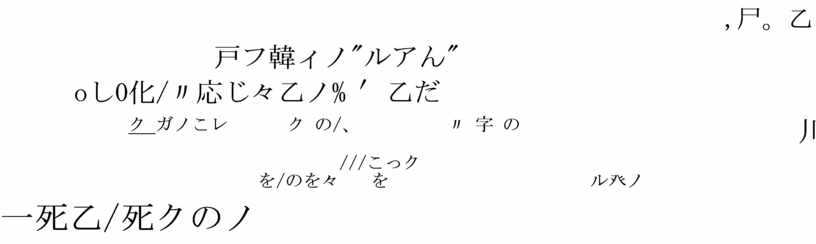 ,尸。乙
戸フ韓ィノ"ルアん"
oし0化/〃応じ々乙ノ%′乙だ
ク ガノこレ ク の/、 〃 字 の
///こっク
を/のを々 を
一死乙/死クのノ